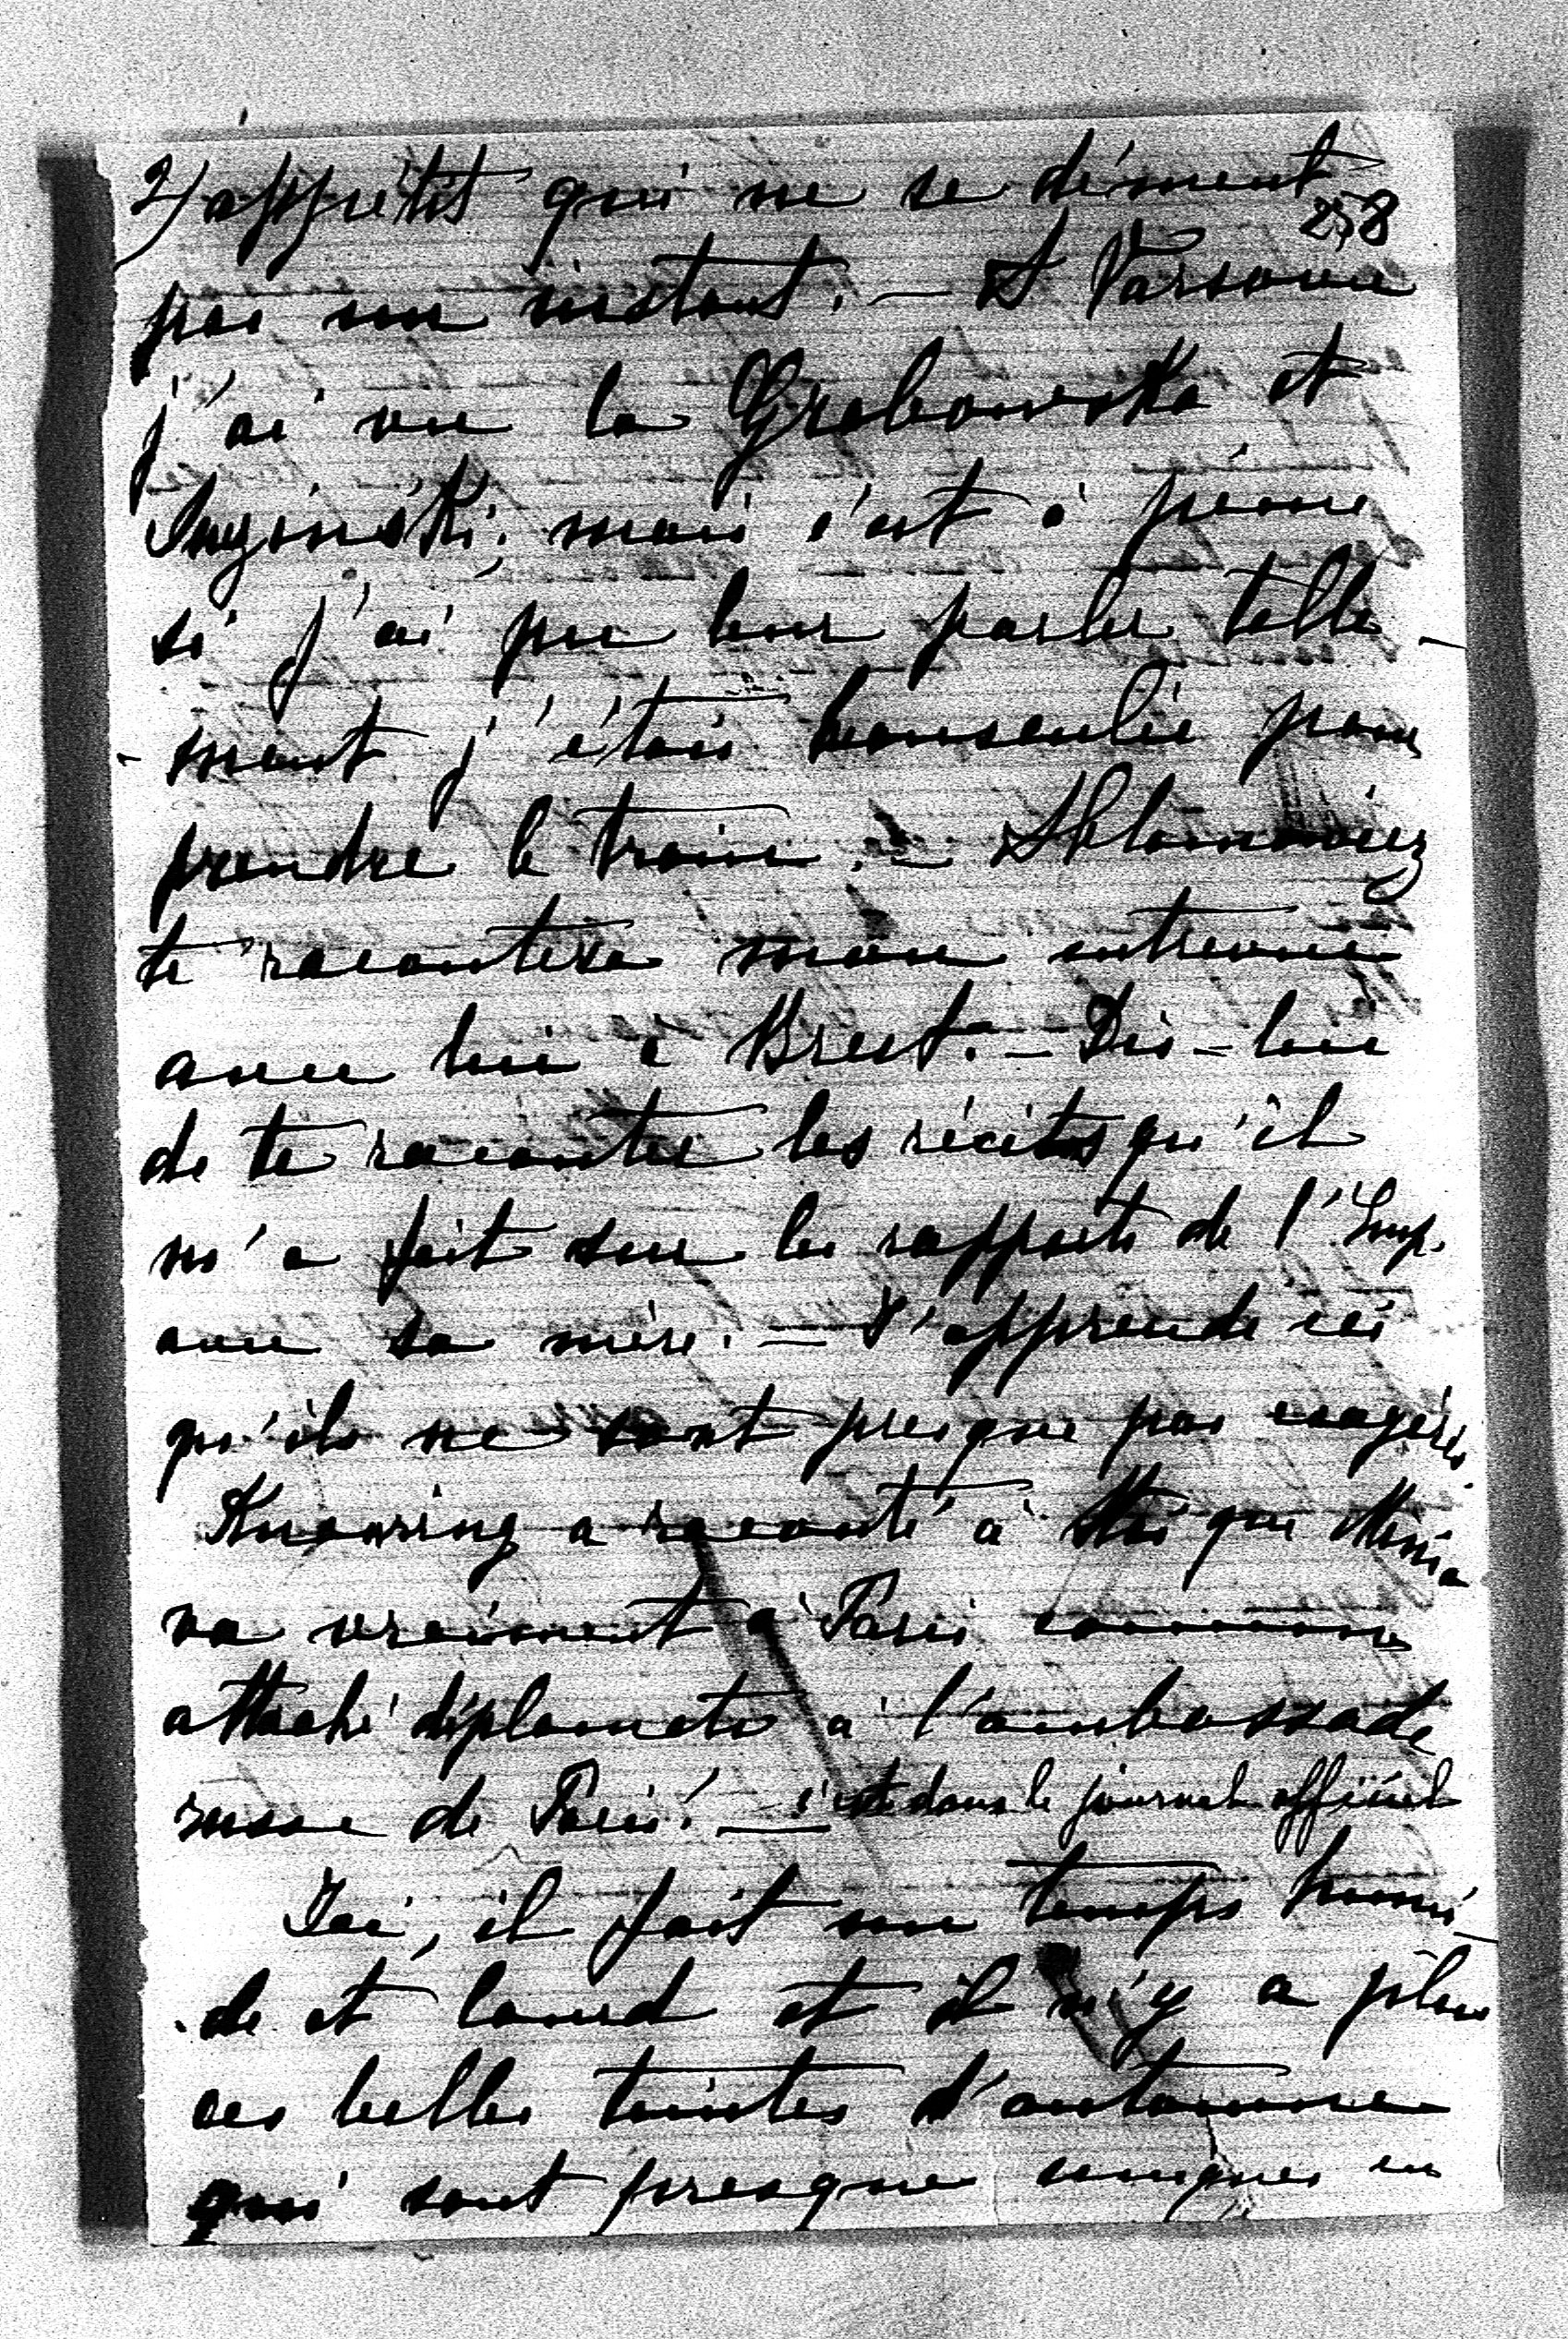 2) appétit qui ne se dément
258
pas un instant. — A Varsovie
j'ai vu la Grabowska et
mais c'est à peine
si j'ai pu leur parler telle-
-ment j'étais bousculée pour
prendre le train. —
te racontera mon entrevue
avec lui à Brest. — Dis-lui
de te raconter les récits qu'il
m'a fait sur les rapports de l'Imp.
avec sa mère. — J'apprends ici
qu'ils ne sont presque pas exagérés.
Knorring a raconté à que
va vraiment à Paris comme
attaché diplomate à l'ambassade
russe de Paris! — c'est dans le journal officiel
Ici, il fait un temps humi-
-de et lourd et il n'y a plus
ces belles teintes d'automne
qui sont presque uniques en